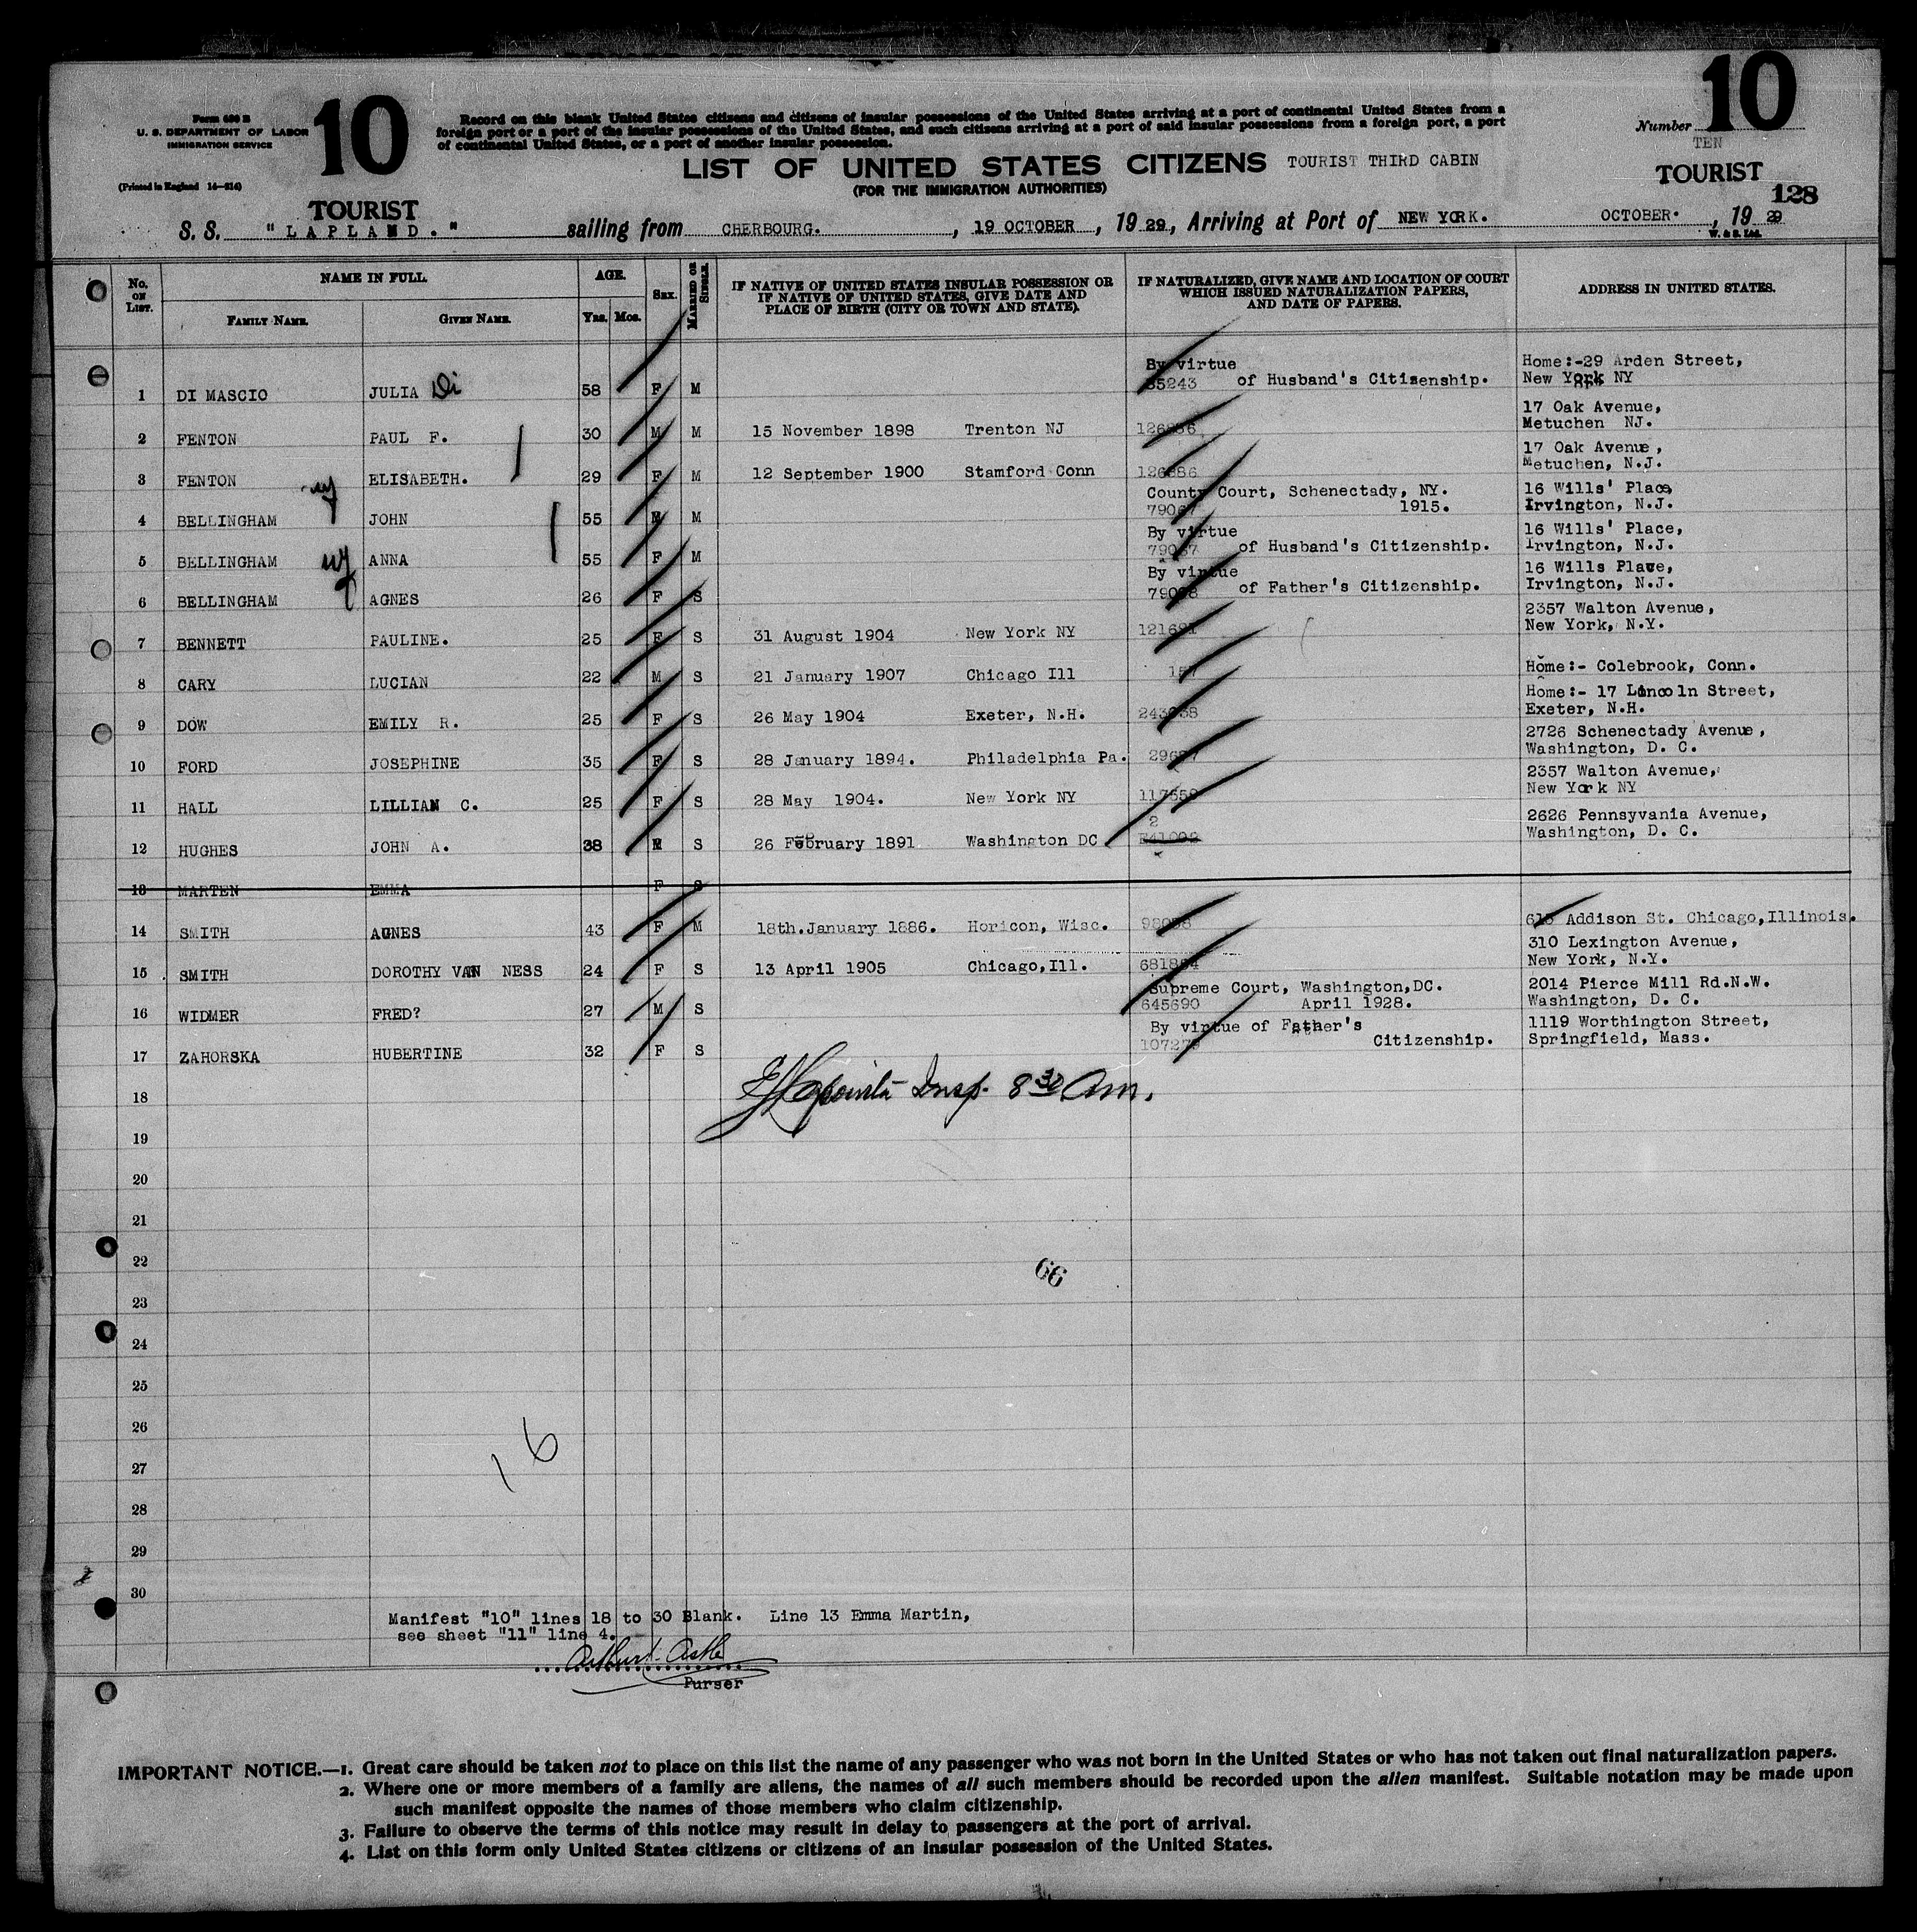 10
10
Form 630 B
U. S. DEPARTMENT OF LABOR
IMMIGRATION SERVICE
(Printed in England 14—214)
Record on this blank United States citizens and citizens of insular possessions of the United States arriving at a port of continental United States from a
foreign port or a port of the insular possessions of the United States, and such citizens arriving at a port of said insular possessions from a foreign port, a port
of continental United States, or a port of another insular possession.
Number
TEN
LIST OF UNITED STATES CITIZENS TOURIST THIRD CABIN
(FOR THE IMMIGRATION AUTHORITIES)
TOURIST
TOURIST
128
S. S. "LAPLAND." sailing from CHERBOURG. , 19 OCTOBER , 19 29, Arriving at Port of NEW YORK. OCTOBER. , 19 29
W. & S. Ltd.
No. ON LIST. NAME IN FULL. AGE. SEX. MARRIED OR SINGLE. IF NATIVE OF UNITED STATES INSULAR POSSESSION OR IF NATIVE OF UNITED STATES, GIVE DATE AND PLACE OF BIRTH (CITY OR TOWN AND STATE). IF NATURALIZED, GIVE NAME AND LOCATION OF COURT WHICH ISSUED NATURALIZATION PAPERS, AND DATE OF PAPERS. ADDRESS IN UNITED STATES.
FAMILY NAME. GIVEN NAME. Yrs. Mos.
1 DI MASCIO JULIA Di 58 F M By virtue of Husband's Citizenship. Home:-29 Arden Street, New York NY
2 FENTON PAUL F. 30 M M 15 November 1898 Trenton NJ 17 Oak Avenue, Metuchen NJ.
3 FENTON ELISABETH. 29 F M 12 September 1900 Stamford Conn 126886 17 Oak Avenue, Metuchen, N.J.
4 BELLINGHAM JOHN 55 M M County Court, Schenectady, NY. 1915. 16 Wills' Place, Irvington, N.J.
5 BELLINGHAM ANNA 55 F M By virtue of Husband's Citizenship. 16 Wills' Place, Irvington, N.J.
6 BELLINGHAM AGNES 26 F S By virtue of Father's Citizenship. 16 Wills Plave, Irvington, N.J.
7 BENNETT PAULINE. 25 F S 31 August 1904 New York NY 2357 Walton Avenue, New York, N.Y.
8 CARY LUCIAN 22 M S 21 January 1907 Chicago Ill Home:- Colebrook, Conn.
9 DOW EMILY R. 25 F S 26 May 1904 Exeter, N.H. Home:- 17 Lincoln Street, Exeter, N.H.
10 FORD JOSEPHINE 35 F S 28 January 1894. Philadelphia Pa. 2726 Schenectady Avenue, Washington, D. C.
11 HALL LILLIAN C. 25 F S 28 May 1904. New York NY 2357 Walton Avenue, New York NY
12 HUGHES JOHN A. 38 M S 26 February 1891 Washington DC 2626 Pennsyvania Avenue, Washington, D. C.
13 MARTEN EMMA F S
14 SMITH AGNES 43 F M 18th.January 1886. Horicon, Wisc. 615 Addison St. Chicago,Illinois.
15 SMITH DOROTHY VAN NESS 24 F S 13 April 1905 Chicago,Ill. 310 Lexington Avenue, New York, N.Y.
16 WIDMER FRED? 27 M S Supreme Court, Washington,DC. 645690 April 1928. 2014 Pierce Mill Rd.N.W. Washington, D. C.
17 ZAHORSKA HUBERTINE 32 F S By virtue of Father's Citizenship. 1119 Worthington Street, Springfield, Mass.
18 Insp. 8 30 Am.
19
20
21
22
66
23
24
25
26
16
27
28
29
30
Manifest "10" lines 18 to 30 Blank. Line 13 Emma Martin,
see sheet "11" line 4.
Purser
IMPORTANT NOTICE.—1. Great care should be taken not to place on this list the name of any passenger who was not born in the United States or who has not taken out final naturalization papers.
2. Where one or more members of a family are aliens, the names of all such members should be recorded upon the alien manifest. Suitable notation may be made upon
such manifest opposite the names of those members who claim citizenship.
3. Failure to observe the terms of this notice may result in delay to passengers at the port of arrival.
4. List on this form only United States citizens or citizens of an insular possession of the United States.